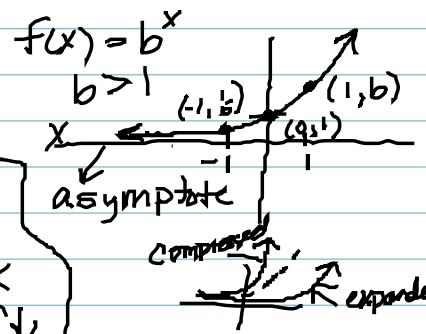 f(x) = b^x
b > 1
(-1, 1/b)
(1, b)
(0, 1)
X
-1
1
asymptote
compressed